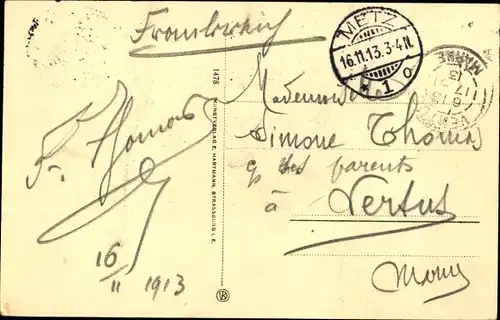 Frankreich
METZ
16.11.13.3-4N.
* 1 o
MARNE
1478
KUNSTVERLAG E. HARTMANN, STRASSBURG I. E.
Fr. Thomas
16
11 1913
Mademoi
Simone Thomas
parents
à Vertus
Marne